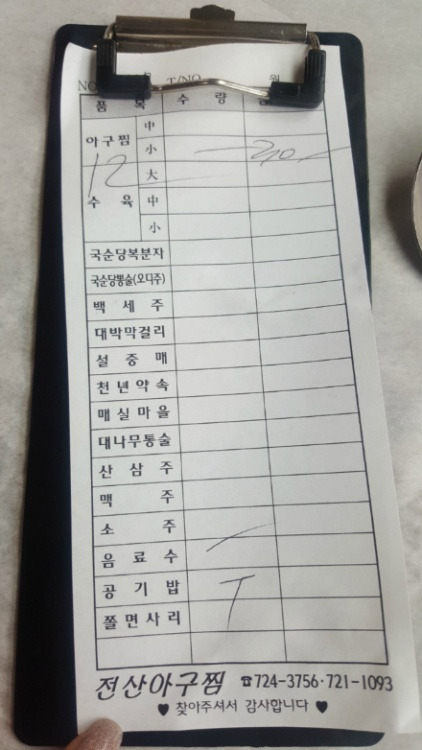 NO. T/NO. 월
품 목 수 량
아구찜 中
小
12 大
수 육 中
小
국순당복분자
국순당뽕술(오디주)
백 세 주
대박막걸리
설 중 매
천년약속
매실마을
대나무통술
산 삼 주
맥 주
소 주
음 료 수
공 기 밥
쫄면사리
전산아구찜 ☎724-3756·721-1093
♥ 찾아주셔서 감사합니다 ♥